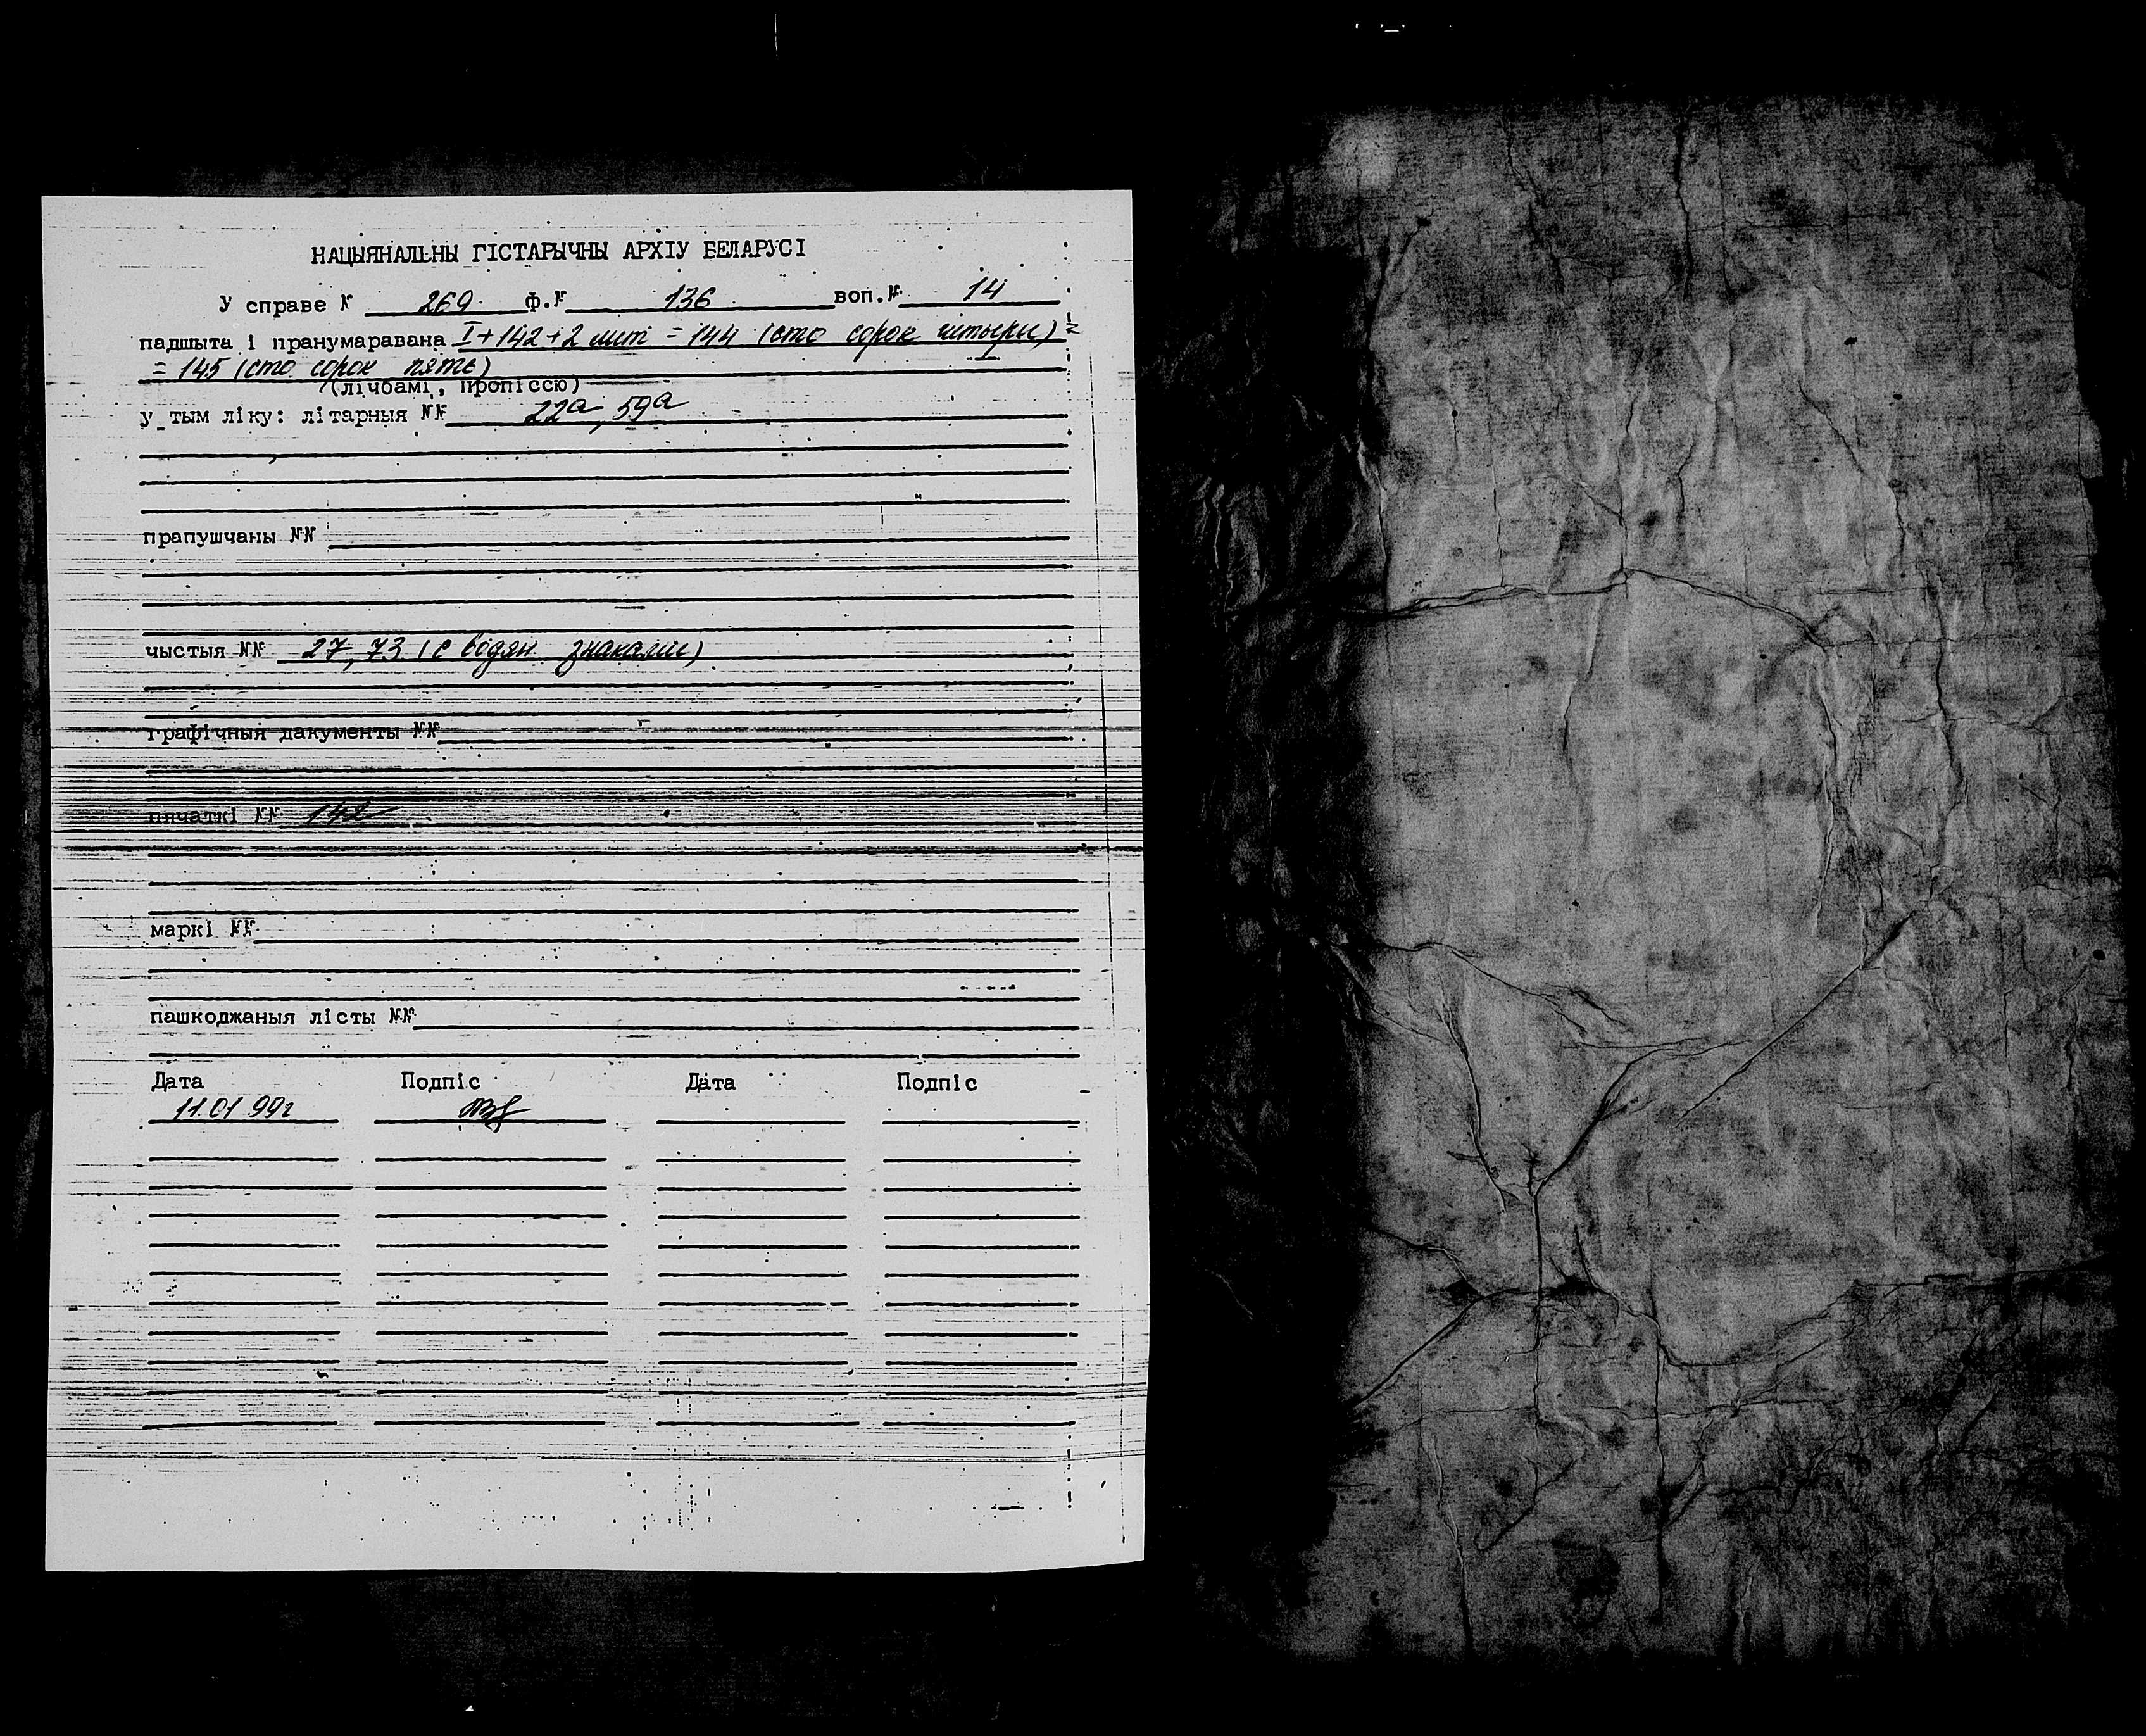 НАЦЫЯНАЛЬНЫ ГІСТАРЫЧНЫ АРХІУ БЕЛАРУСІ
У справе № 269 ф.№ 136 воп.№ 14
падшыта і пранумаравана I+142+2 лит = 144 (сто сорок четыри) =
= 145 (сто сорок пять)
(лічбамі, пропіссю)
у тым ліку: літарныя №№ 22а, 59а
прапушчаны №№
чыстыя №№ 27, 73 (с водян. знаками)
графічныя дакументы №№
пячаткі №№ 142
маркі №№
пашкоджаныя лісты №№
Дата Подпіс Дата Подпіс
11.01.99г